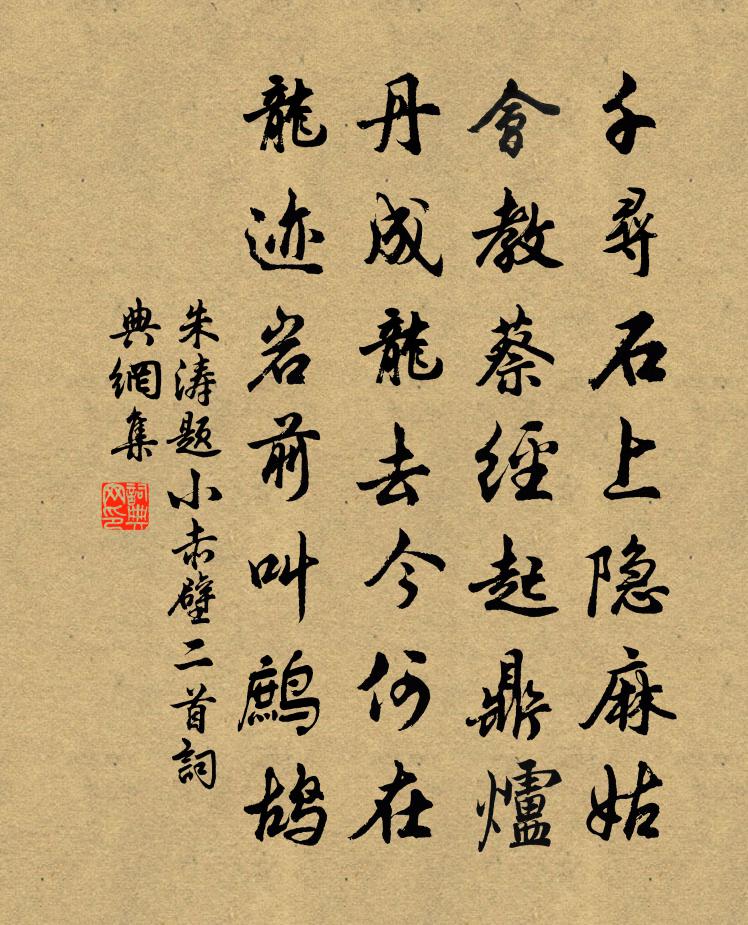 千尋石上隐麻姑
會教蔡經起鼎爐
丹成龍去今何在
龍迹岩前叫鷓鴣
朱濤題小赤壁二首詞
典網集
詞典網印